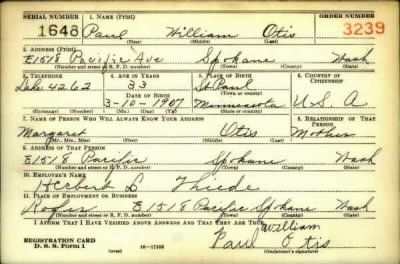 SERIAL NUMBER 1. NAME (Print) ORDER NUMBER
1648 Paul William Otis 3239
(First) (Middle) (Last)
2. ADDRESS (Print)
E1518 Pacific Ave Spokane Wash
(Number and street or R. F. D. number) (Town) (County) (State)
3. TELEPHONE 4. AGE IN YEARS 5. PLACE OF BIRTH 6. COUNTRY OF CITIZENSHIP
Lake 4262 33 St Paul
DATE OF BIRTH (Town or county)
3-10-1907 Minnesota U.S.A
(Exchange) (Number) (Mo.) (Day) (Yr.) (State or country)
7. NAME OF PERSON WHO WILL ALWAYS KNOW YOUR ADDRESS 8. RELATIONSHIP OF THAT PERSON
Margaret Otis Mother
(Mr., Mrs., Miss) (First) (Middle) (Last)
9. ADDRESS OF THAT PERSON
E1518 Pacific Spokane Wash
(Number and street or R. F. D. number) (Town) (County) (State)
10. EMPLOYER'S NAME
Herbert L Thiede
11. PLACE OF EMPLOYMENT OR BUSINESS
E1518 Pacific Spokane Wash
(Number and street or R. F. D. number) (Town) (County) (State)
I AFFIRM THAT I HAVE VERIFIED ABOVE ANSWERS AND THAT THEY ARE TRUE.
William
REGISTRATION CARD Paul Otis
D. S. S. Form 1 16-17105